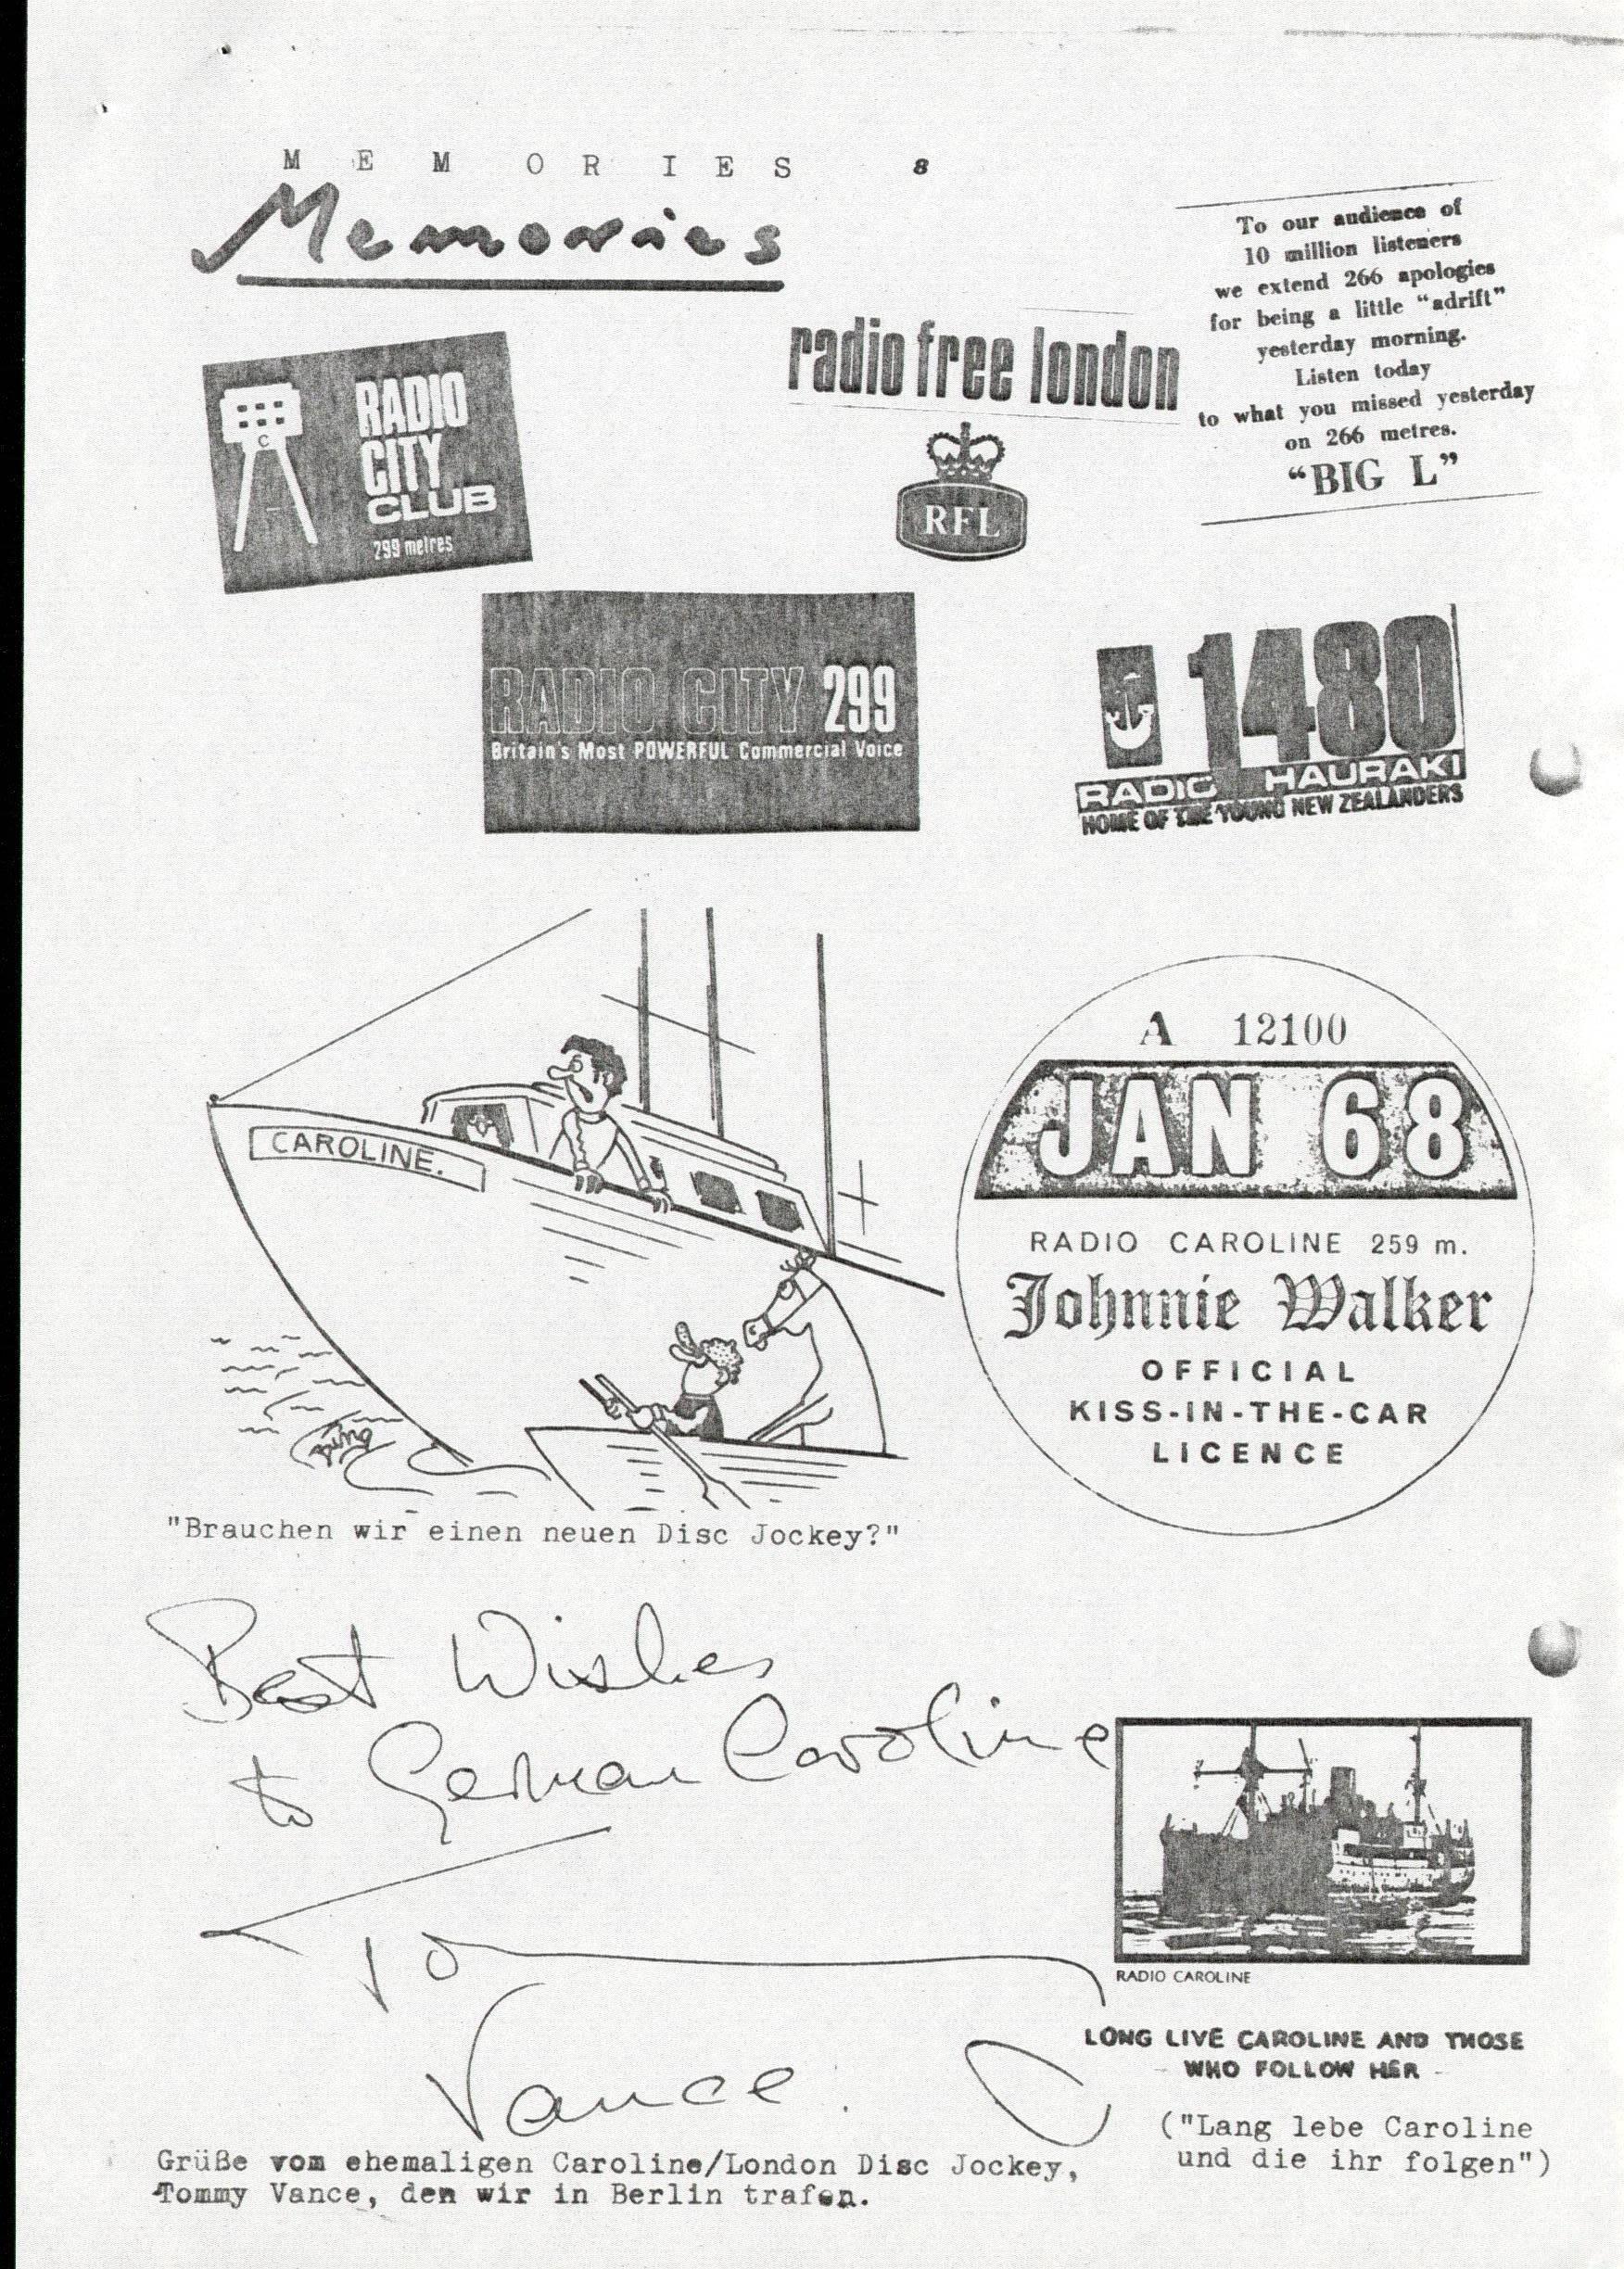 M E M O R I E S 8
Memories
To our audience of
10 million listeners
we extend 266 apologies
for being a little "adrift"
yesterday morning.
Listen today
to what you missed yesterday
on 266 metres.
"BIG L"
radio free london
RFL
C
RADIO
CITY
CLUB
299 metres
RADIO CITY 299
Britain's Most POWERFUL Commercial Voice
1480
RADIO HAURAKI
HOME OF THE YOUNG NEW ZEALANDERS
CAROLINE.
"Brauchen wir einen neuen Disc Jockey?"
A 12100
JAN 68
RADIO CAROLINE 259 m.
Johnnie Walker
OFFICIAL
KISS-IN-THE-CAR
LICENCE
Best Wishes
to German Caroline
Vance.
RADIO CAROLINE
LONG LIVE CAROLINE AND THOSE
- WHO FOLLOW HER -
("Lang lebe Caroline
und die ihr folgen")
Grüße vom ehemaligen Caroline/London Disc Jockey,
Tommy Vance, den wir in Berlin trafen.